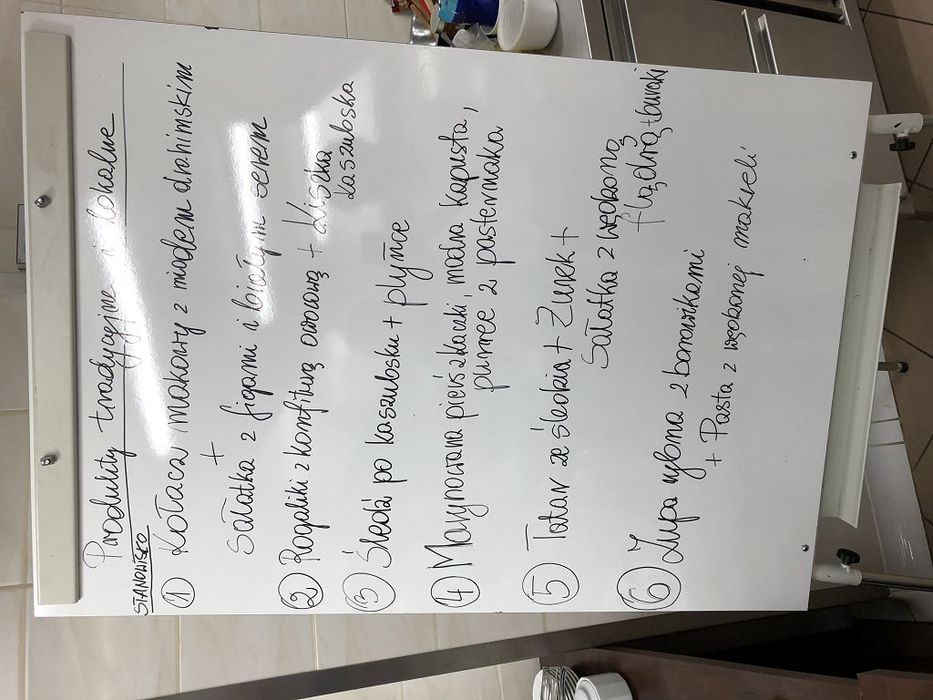 Produkty tradycyjne i lokalne
STANOWISKO
① Kołacz makowy z miodem drahimskim
+
Sałatka z figami i białym serem
② Rogaliki z konfiturą owocową + Kiszka
kaszubska
③ Śledź po kaszubsku + plyńce
④ Marynowana pierś z kaczki, modra kapusta,
purree z pasternaka
⑤ Tatar ze śledzia + Żurek +
Sałatka z wędzoną
flądrą + buraki
⑥ Zupa rybna z borowikami
+ Pasta z wędzonej makreli